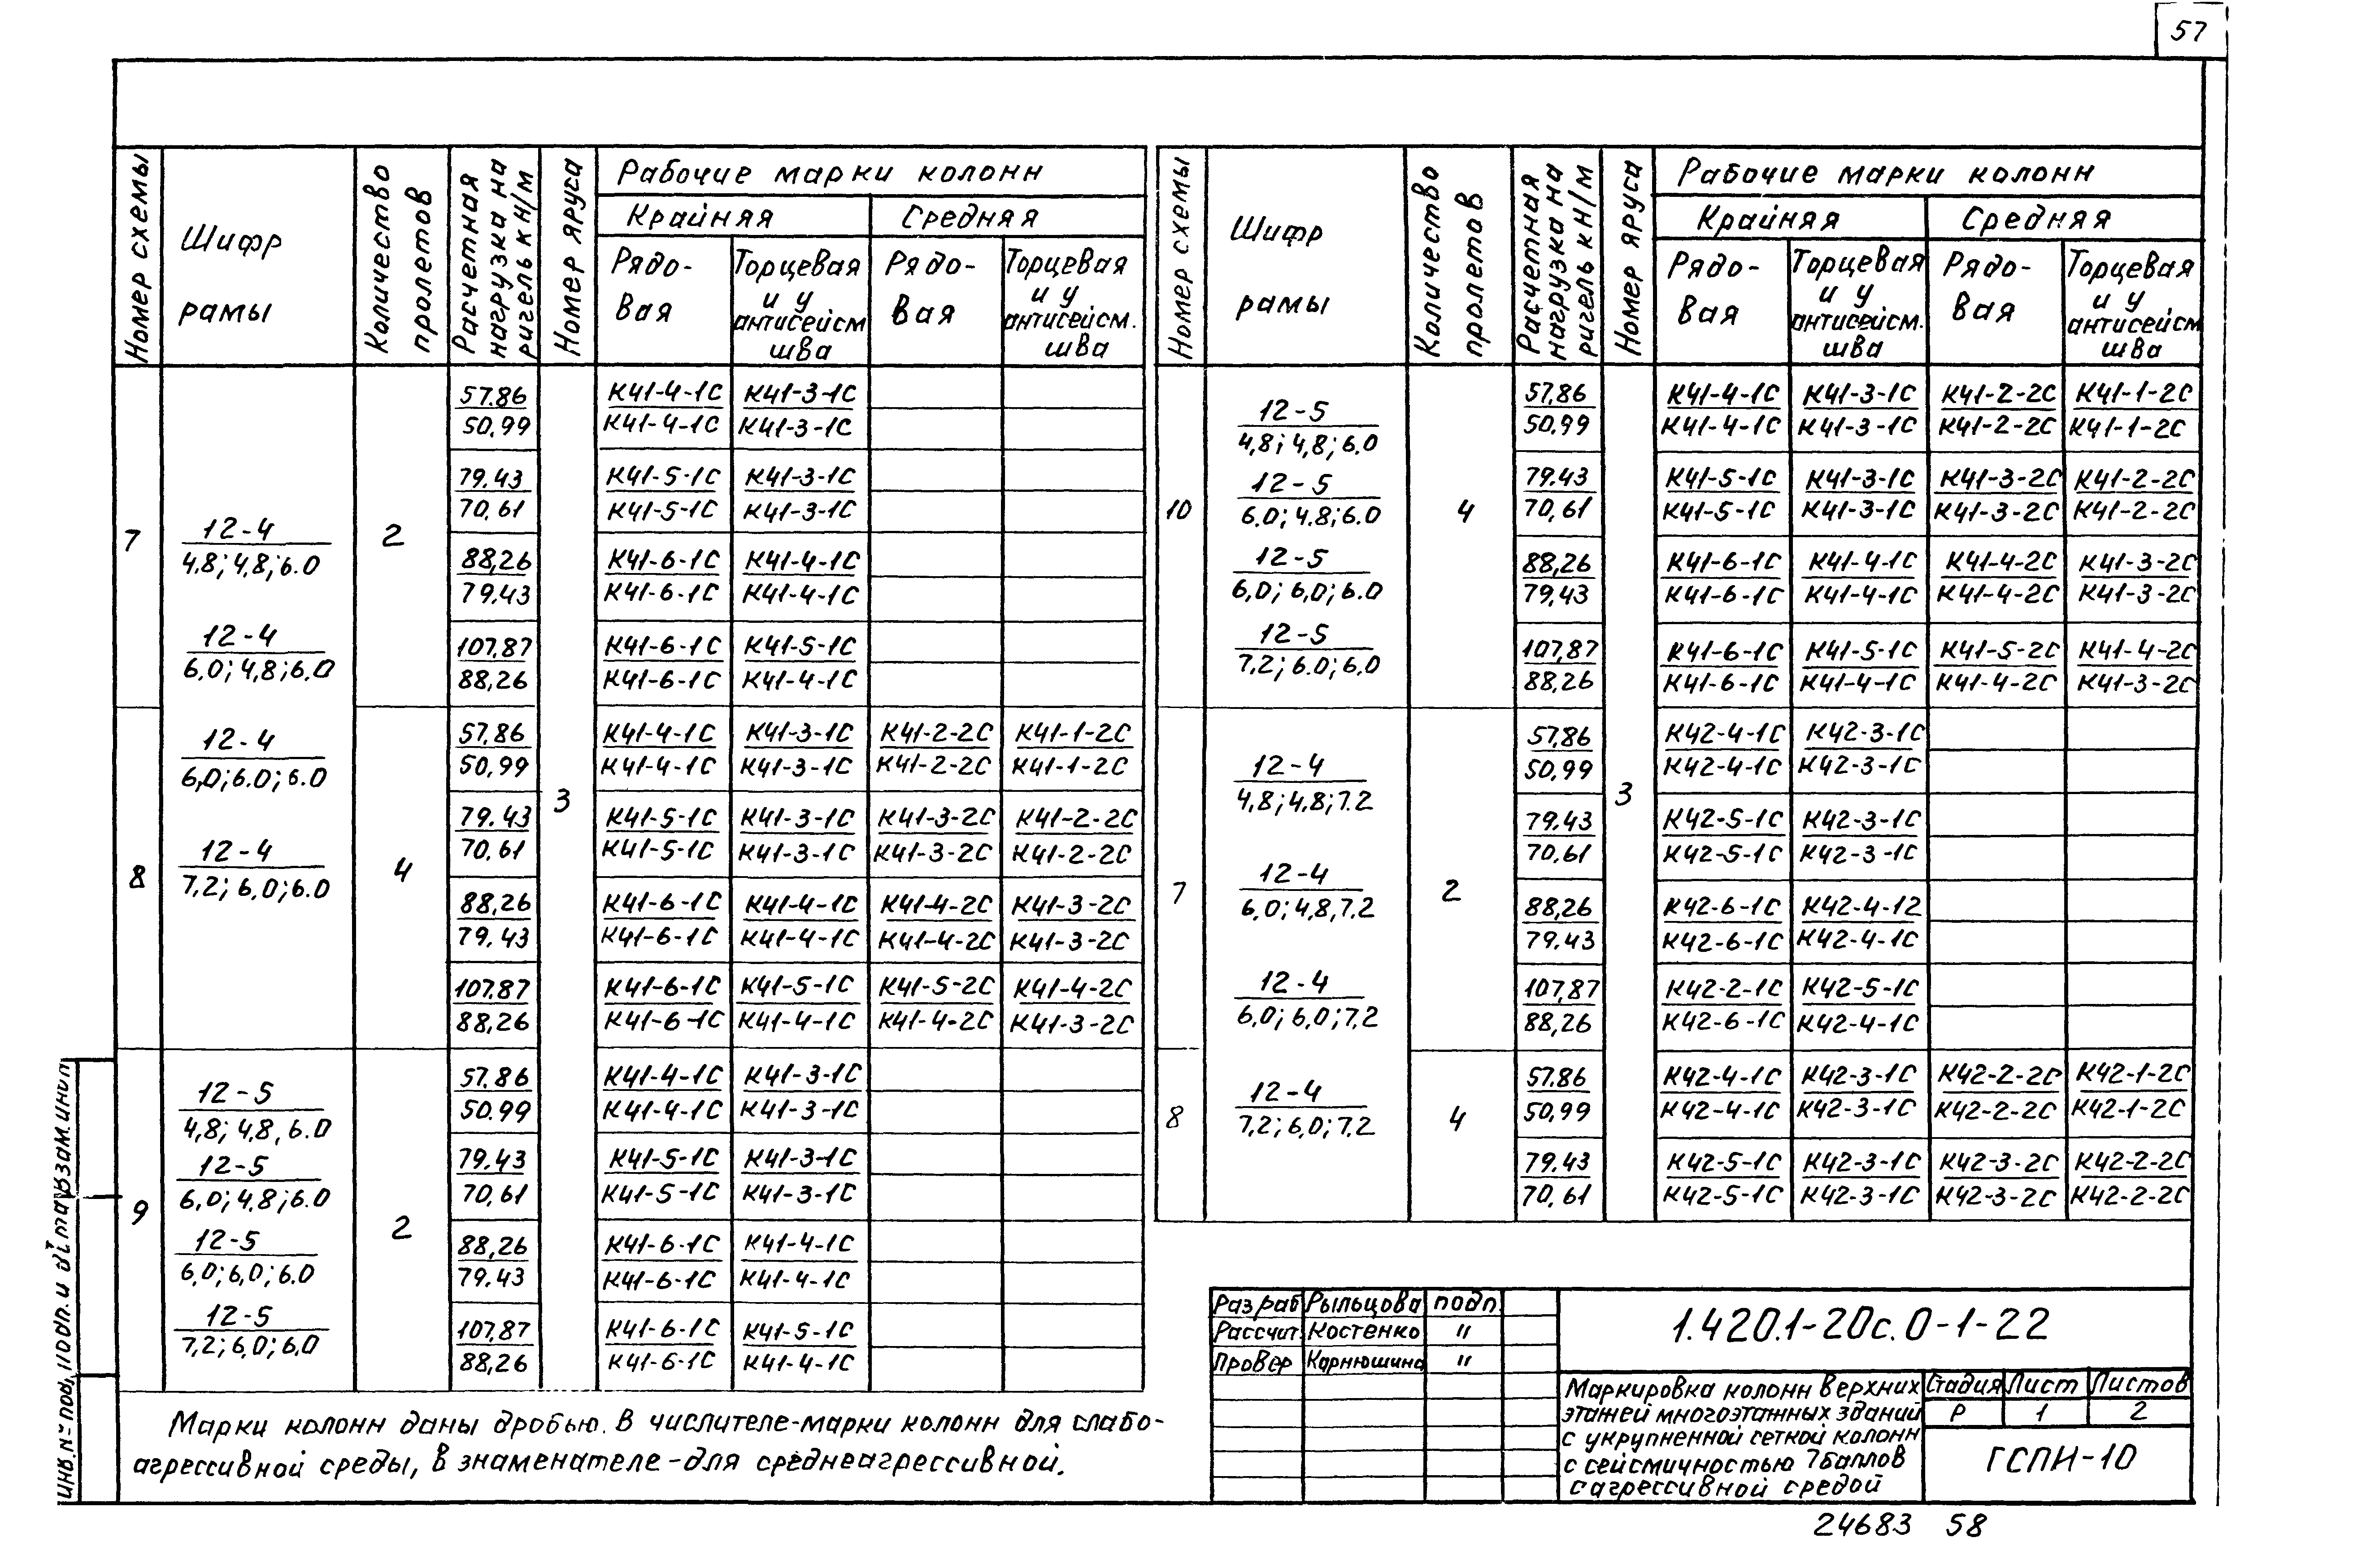 57
Номер схемы
Шифр рамы
Количество пролетов
Расчетная нагрузка на ригель кН/м
Номер яруса
Рабочие марки колонн
Крайняя Средняя
Рядовая
Торцевая и у антисейсм шва
Рядовая
Торцевая и у антисейсм. шва
7
12-4
4,8; 4,8; 6.0
12-4
6,0; 4,8; 6.0
2
3
57.86 К41-4-1С К41-3-1С
50.99 К41-4-1С К41-3-1С
79.43 К41-5-1С К41-3-1С
70,61 К41-5-1С К41-3-1С
88,26 К41-6-1С К41-4-1С
79.43 К41-6-1С К41-4-1С
107.87 К41-6-1С К41-5-1С
88,26 К41-6-1С К41-4-1С
8
12-4
6,0; 6.0; 6.0
12-4
7,2; 6,0; 6.0
4
57.86 К41-4-1С К41-3-1С К41-2-2С К41-1-2С
50,99 К41-4-1С К41-3-1С К41-2-2С К41-1-2С
79.43 К41-5-1С К41-3-1С К41-3-2С К41-2-2С
70.61 К41-5-1С К41-3-1С К41-3-2С К41-2-2С
88,26 К41-6-1С К41-4-1С К41-4-2С К41-3-2С
79.43 К41-6-1С К41-4-1С К41-4-2С К41-3-2С
107.87 К41-6-1С К41-5-1С К41-5-2С К41-4-2С
88,26 К41-6-1С К41-4-1С К41-4-2С К41-3-2С
9
12-5
4,8; 4,8, 6.0
12-5
6,0; 4,8; 6.0
12-5
6,0; 6,0; 6.0
12-5
7,2; 6,0; 6,0
2
57.86 К41-4-1С К41-3-1С
50.99 К41-4-1С К41-3-1С
79.43 К41-5-1С К41-3-1С
70,61 К41-5-1С К41-3-1С
88,26 К41-6-1С К41-4-1С
79.43 К41-6-1С К41-4-1С
107,87 К41-6-1С К41-5-1С
88,26 К41-6-1С К41-4-1С
Марки колонн даны дробью. В числителе-марки колонн для слабо-
агрессивной среды, в знаменателе-для среднеагрессивной.
Номер схемы
Шифр рамы
Количество пролетов
Расчетная нагрузка на ригель кН/м
Номер яруса
Рабочие марки колонн
Крайняя Средняя
Рядовая
Торцевая и у антисейсм. шва
Рядовая
Торцевая и у антисейсм шва
10
12-5
4,8; 4,8; 6.0
12-5
6.0; 4.8; 6.0
12-5
6,0; 6,0; 6.0
12-5
7,2; 6.0; 6,0
4
3
57,86 К41-4-1С К41-3-1С К41-2-2С К41-1-2С
50.99 К41-4-1С К41-3-1С К41-2-2С К41-1-2С
79.43 К41-5-1С К41-3-1С К41-3-2С К41-2-2С
70,61 К41-5-1С К41-3-1С К41-3-2С К41-2-2С
88,26 К41-6-1С К41-4-1С К41-4-2С К41-3-2С
79,43 К41-6-1С К41-4-1С К41-4-2С К41-3-2С
107,87 К41-6-1С К41-5-1С К41-5-2С К41-4-2С
88,26 К41-6-1С К41-4-1С К41-4-2С К41-3-2С
7
12-4
4,8; 4,8; 7.2
12-4
6,0; 4,8, 7.2
12-4
6,0; 6,0; 7,2
2
57,86 К42-4-1С К42-3-1С
50,99 К42-4-1С К42-3-1С
79.43 К42-5-1С К42-3-1С
70,61 К42-5-1С К42-3-1С
88,26 К42-6-1С К42-4-12
79.43 К42-6-1С К42-4-1С
107,87 К42-2-1С К42-5-1С
88,26 К42-6-1С К42-4-1С
8
12-4
7,2; 6,0; 7.2
4
57.86 К42-4-1С К42-3-1С К42-2-2С К42-1-2С
50,99 К42-4-1С К42-3-1С К42-2-2С К42-1-2С
79.43 К42-5-1С К42-3-1С К42-3-2С К42-2-2С
70,61 К42-5-1С К42-3-1С К42-3-2С К42-2-2С
Разраб Рыльцова подп.
Рассчит Костенко "
Провер Карнюшина "
1.420.1-20с.0-1-22
Маркировка колонн верхних
этажей многоэтажных зданий
с укрупненной сеткой колонн
с сейсмичностью 7 баллов
с агрессивной средой
Стадия Лист Листов
Р 1 2
ГСПИ-10
Инв.№ под, подп. и дата взам. инв
24683 58